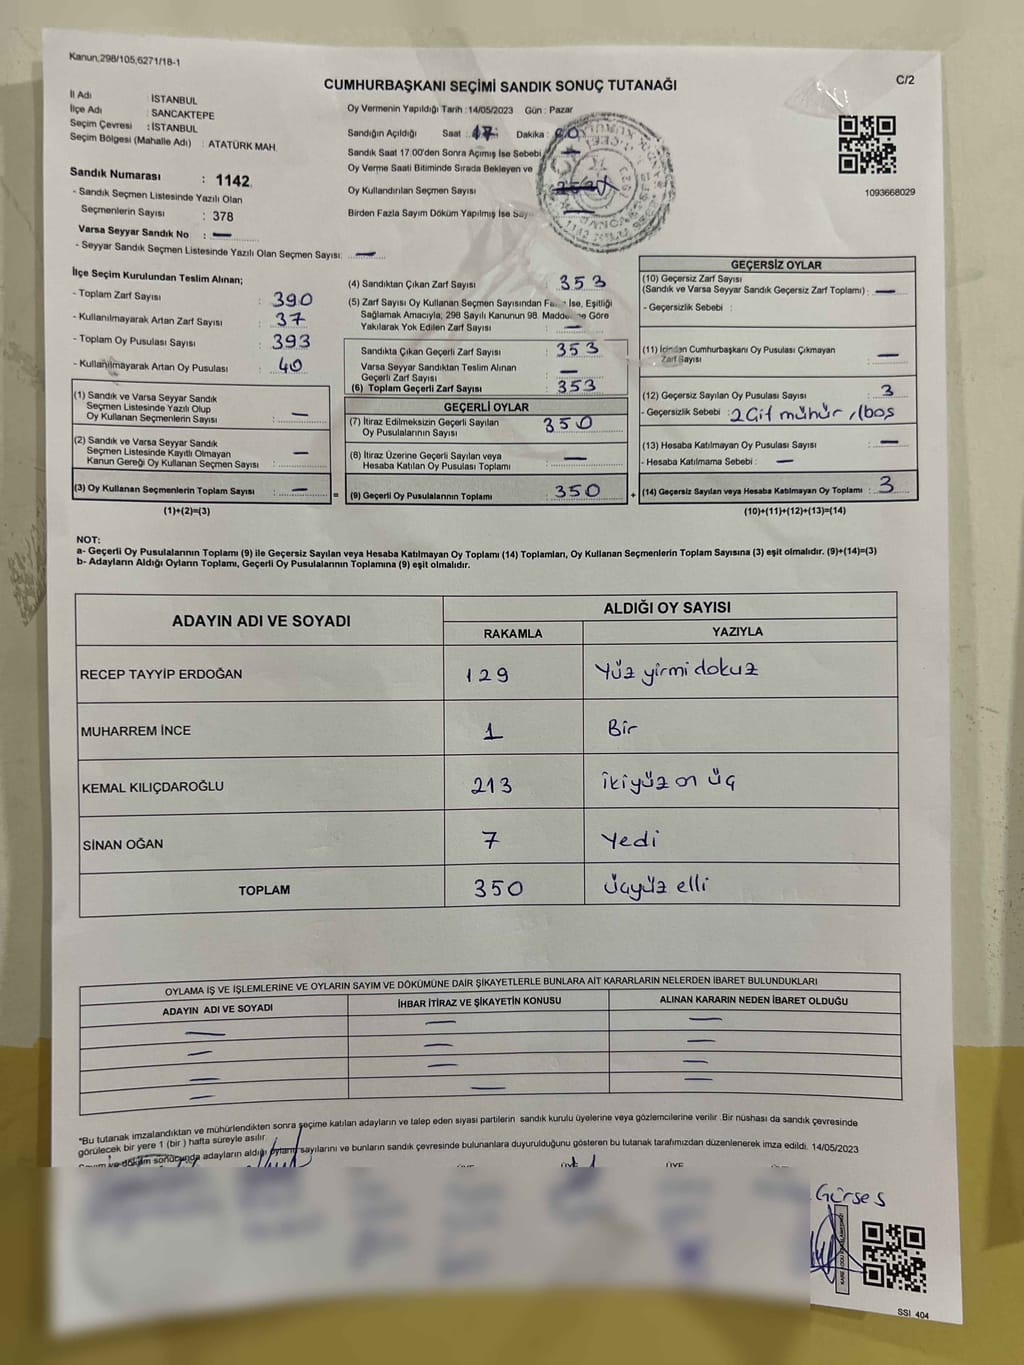 Kanun;298/105,6271/18-1
C/2
CUMHURBAŞKANI SEÇİMİ SANDIK SONUÇ TUTANAĞI
İl Adı : İSTANBUL
İlçe Adı : SANCAKTEPE
Seçim Çevresi : İSTANBUL
Seçim Bölgesi (Mahalle Adı) : ATATÜRK MAH.
Sandık Numarası : 1142
- Sandık Seçmen Listesinde Yazılı Olan
Seçmenlerin Sayısı : 378
Varsa Seyyar Sandık No : —
- Seyyar Sandık Seçmen Listesinde Yazılı Olan Seçmen Sayısı: —
Oy Vermenin Yapıldığı Tarih :14/05/2023 Gün : Pazar
Sandığın Açıldığı Saat : 17: Dakika :
Sandık Saat 17:00'den Sonra Açımış İse Sebebi —
Oy Verme Saati Bitiminde Sırada Bekleyen ve
Oy Kullandırılan Seçmen Sayısı
Birden Fazla Sayım Döküm Yapılmış İse Say —
1093668029
İlçe Seçim Kurulundan Teslim Alınan;
- Toplam Zarf Sayısı : 390
- Kullanılmayarak Artan Zarf Sayısı : 37
- Toplam Oy Pusulası Sayısı : 393
- Kullanılmayarak Artan Oy Pusulası : 40
(1) Sandık ve Varsa Seyyar Sandık
Seçmen Listesinde Yazılı Olup
Oy Kullanan Seçmenlerin Sayısı : —
(2) Sandık ve Varsa Seyyar Sandık
Seçmen Listesinde Kayıtlı Olmayan
Kanun Gereği Oy Kullanan Seçmen Sayısı : —
(3) Oy Kullanan Seçmenlerin Toplam Sayısı : —
(1)+(2)=(3)
(4) Sandıktan Çıkan Zarf Sayısı : 353
(5) Zarf Sayısı Oy Kullanan Seçmen Sayısından İse, Eşitliği
Sağlamak Amacıyla, 298 Sayılı Kanunun 98. Göre
Yakılarak Yok Edilen Zarf Sayısı : —
Sandıkta Çıkan Geçerli Zarf Sayısı : 353
Varsa Seyyar Sandıktan Teslim Alınan
Geçerli Zarf Sayısı : —
(6) Toplam Geçerli Zarf Sayısı : 353
GEÇERLİ OYLAR
(7) İtiraz Edilmeksizin Geçerli Sayılan
Oy Pusulalarının Sayısı : 350
(8) İtiraz Üzerine Geçerli Sayılan veya
Hesaba Katılan Oy Pusulası Toplamı : —
= (9) Geçerli Oy Pusulalarının Toplamı : 350
GEÇERSİZ OYLAR
(10) Geçersiz Zarf Sayısı
(Sandık ve Varsa Seyyar Sandık Geçersiz Zarf Toplamı) : —
- Geçersizlik Sebebi :
(11) İçinden Cumhurbaşkanı Oy Pusulası Çıkmayan
Zarf Sayısı : —
(12) Geçersiz Sayılan Oy Pusulası Sayısı : 3
- Geçersizlik Sebebi : 2 Çift mühür, 1 boş
(13) Hesaba Katılmayan Oy Pusulası Sayısı : —
- Hesaba Katılmama Sebebi : —
+ (14) Geçersiz Sayılan veya Hesaba Katılmayan Oy Toplamı : 3
(10)+(11)+(12)+(13)=(14)
NOT:
a- Geçerli Oy Pusulalarının Toplamı (9) ile Geçersiz Sayılan veya Hesaba Katılmayan Oy Toplamı (14) Toplamları, Oy Kullanan Seçmenlerin Toplam Sayısına (3) eşit olmalıdır. (9)+(14)=(3)
b- Adayların Aldığı Oyların Toplamı, Geçerli Oy Pusulalarının Toplamına (9) eşit olmalıdır.
ADAYIN ADI VE SOYADI
ALDIĞI OY SAYISI
RAKAMLA YAZIYLA
RECEP TAYYİP ERDOĞAN 129 Yüz yirmi dokuz
MUHARREM İNCE 1 Bir
KEMAL KILIÇDAROĞLU 213 İkiyüz on üç
SİNAN OĞAN 7 Yedi
TOPLAM 350 Üçyüz elli
OYLAMA İŞ VE İŞLEMLERİNE VE OYLARIN SAYIM VE DÖKÜMÜNE DAİR ŞİKAYETLERLE BUNLARA AİT KARARLARIN NELERDEN İBARET BULUNDUKLARI
ADAYIN ADI VE SOYADI İHBAR İTİRAZ VE ŞİKAYETİN KONUSU ALINAN KARARIN NEDEN İBARET OLDUĞU
— — —
— — —
— — —
— — —
*Bu tutanak imzalandıktan ve mühürlendikten sonra seçime katılan adayların ve talep eden siyasi partilerin sandık kurulu üyelerine veya gözlemcilerine verilir. Bir nüshası da sandık çevresinde
görülecek bir yere 1 (bir) hafta süreyle asılır.
Sayım ve döküm sonucunda adayların aldığı oyların sayılarını ve bunların sandık çevresinde bulunanlara duyurulduğunu gösteren bu tutanak tarafımızdan düzenlenerek imza edildi. 14/05/2023
ÜYE ÜYE ÜYE
Gürses
SSI 404